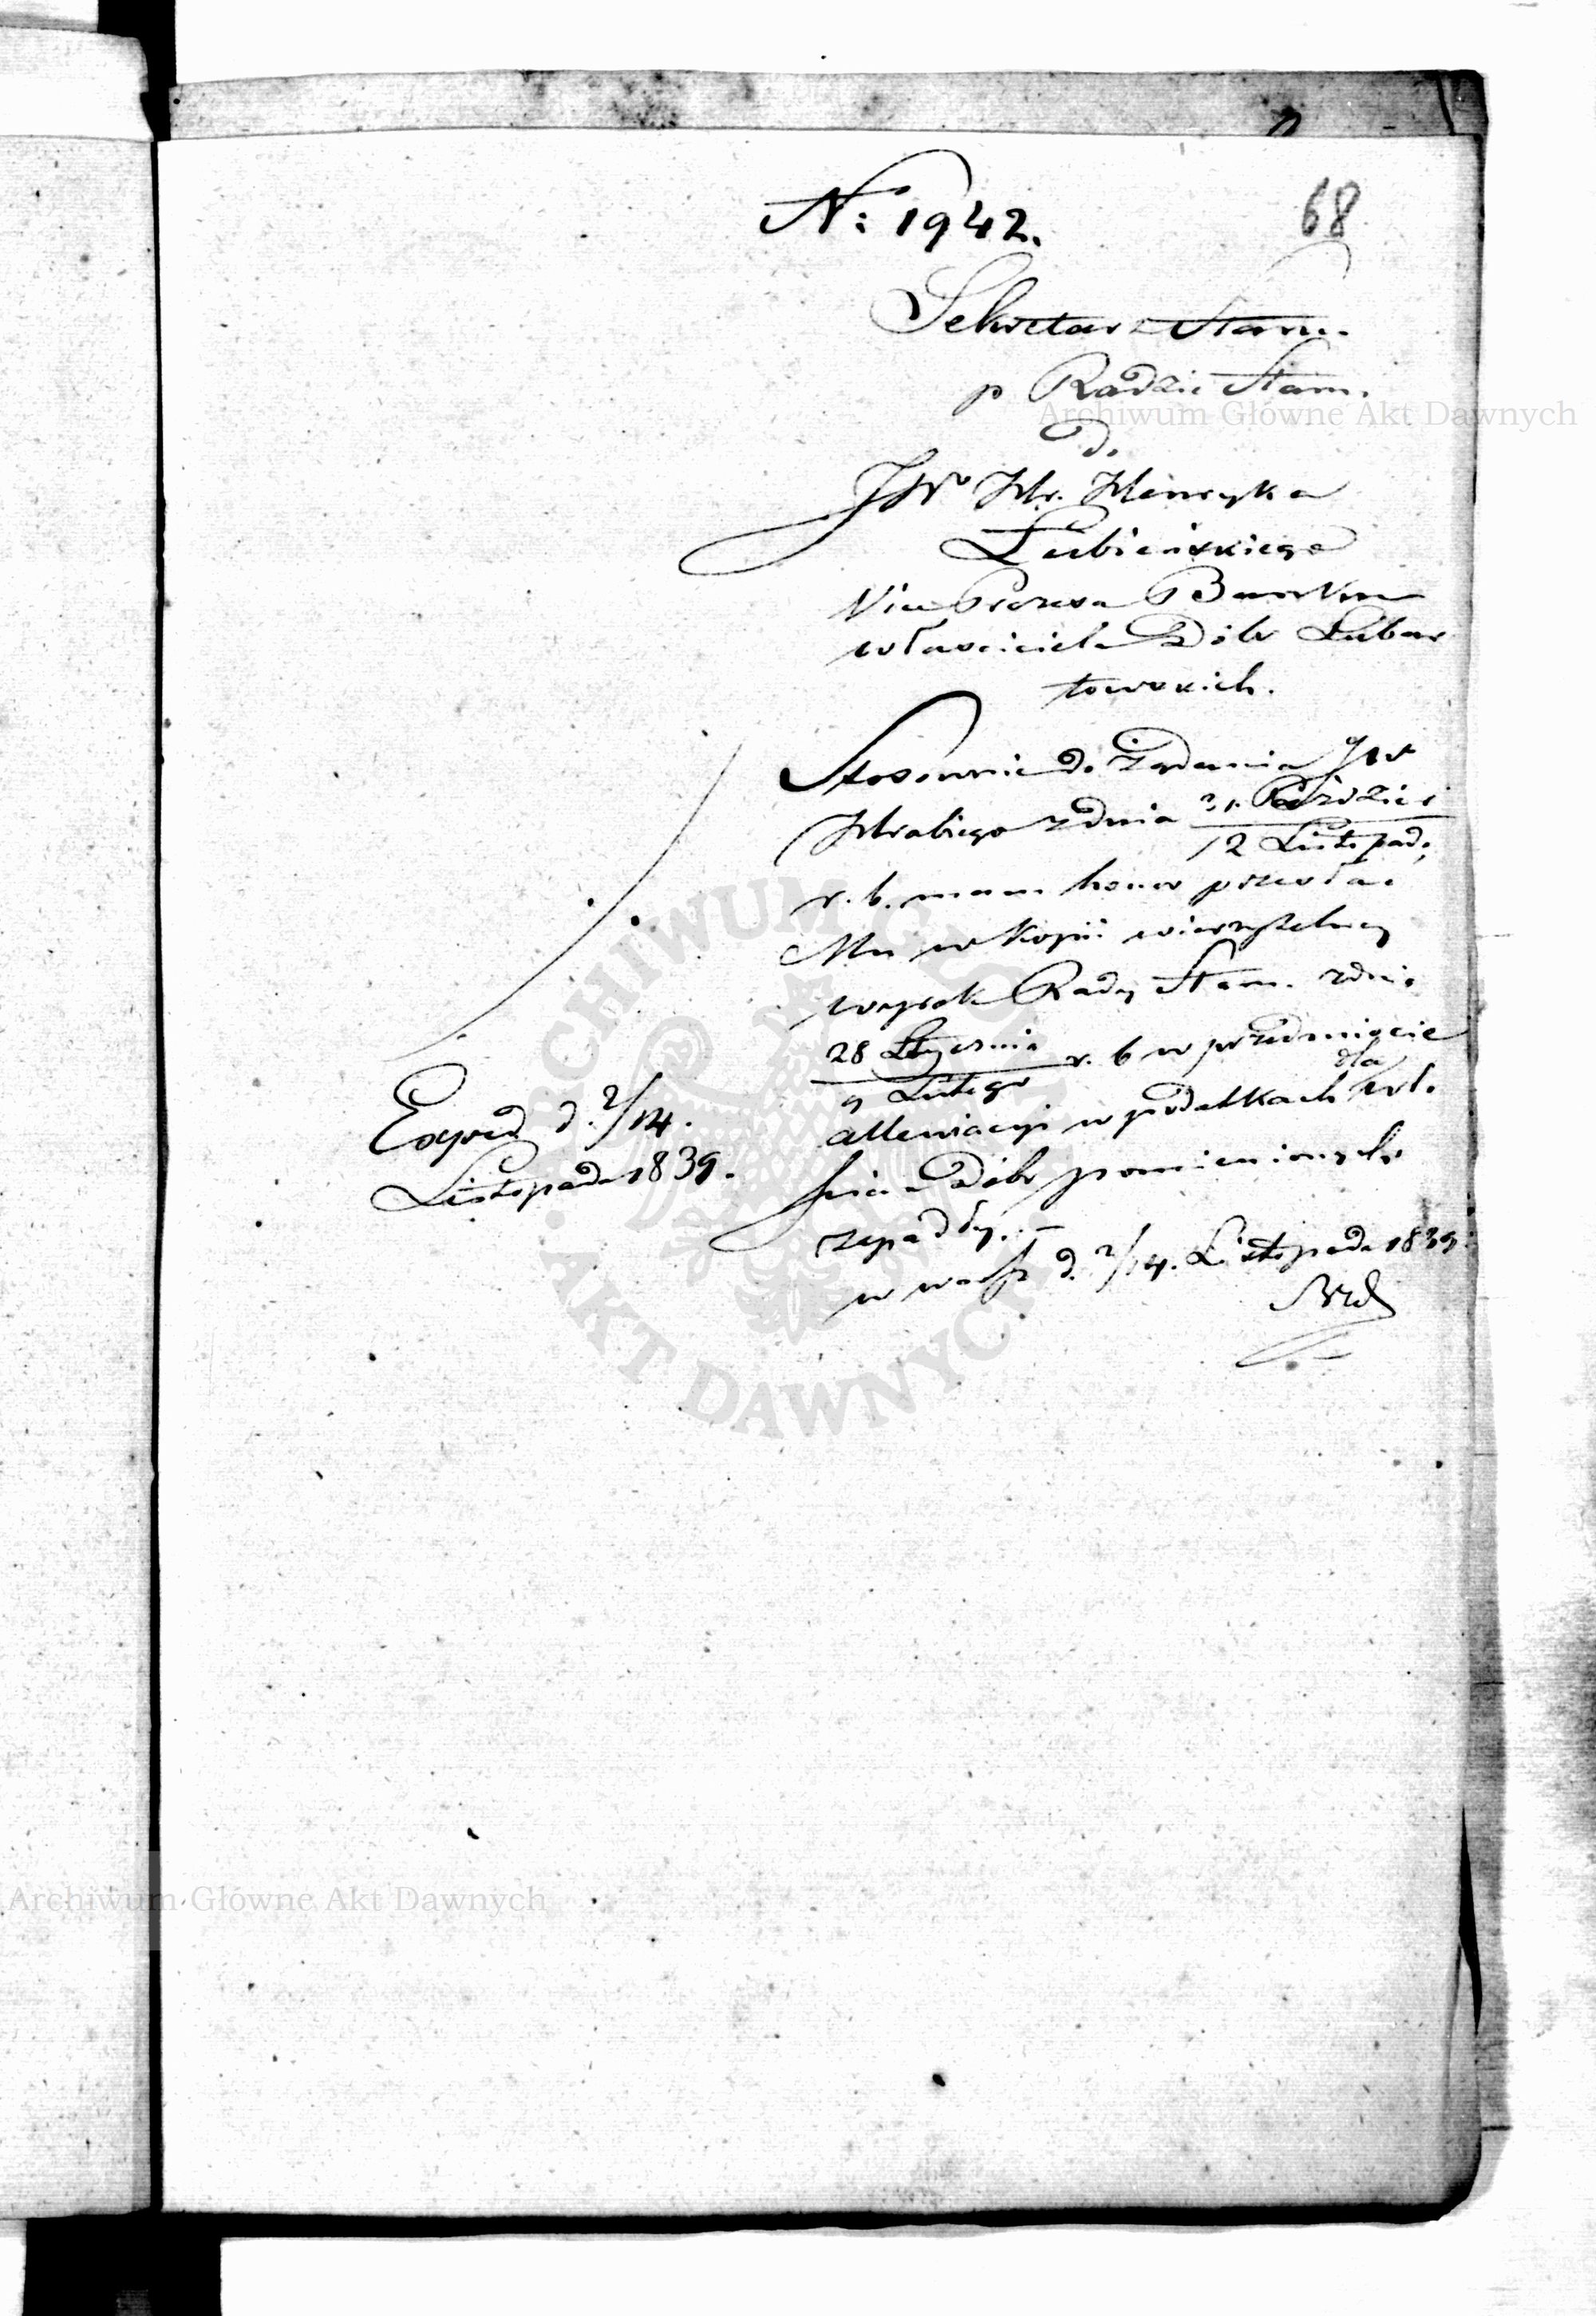 68
N: 1942.
Sekretarz Stanu
p Radzie Stanu.
do
JWo Hr. Henryka
Łubieńskiego
Vice Prezesa Banku
właściciela Dóbr Lubar
towskich.
Stosownie do żądania JW
Hrabiego z dnia 31. Paździer
12 Listopad.
r. b. mam honor przesłać
Mu w kopii wierzytelney
wyrok Rady Stanu. z dnia
28 Stycznia
9 Lutego
r. b w przedmiocie
allewiacyi w podatkach dla wł.
Dóbr pomienionych
zapadły. –
w d. 2/14. Listopada 1839
Exped d. 2/14.
Listopada 1839.
Archiwum Główne Akt Dawnych
ARCHIWUM GŁÓWNE
AKT DAWNYCH
Archiwum Główne Akt Dawnych